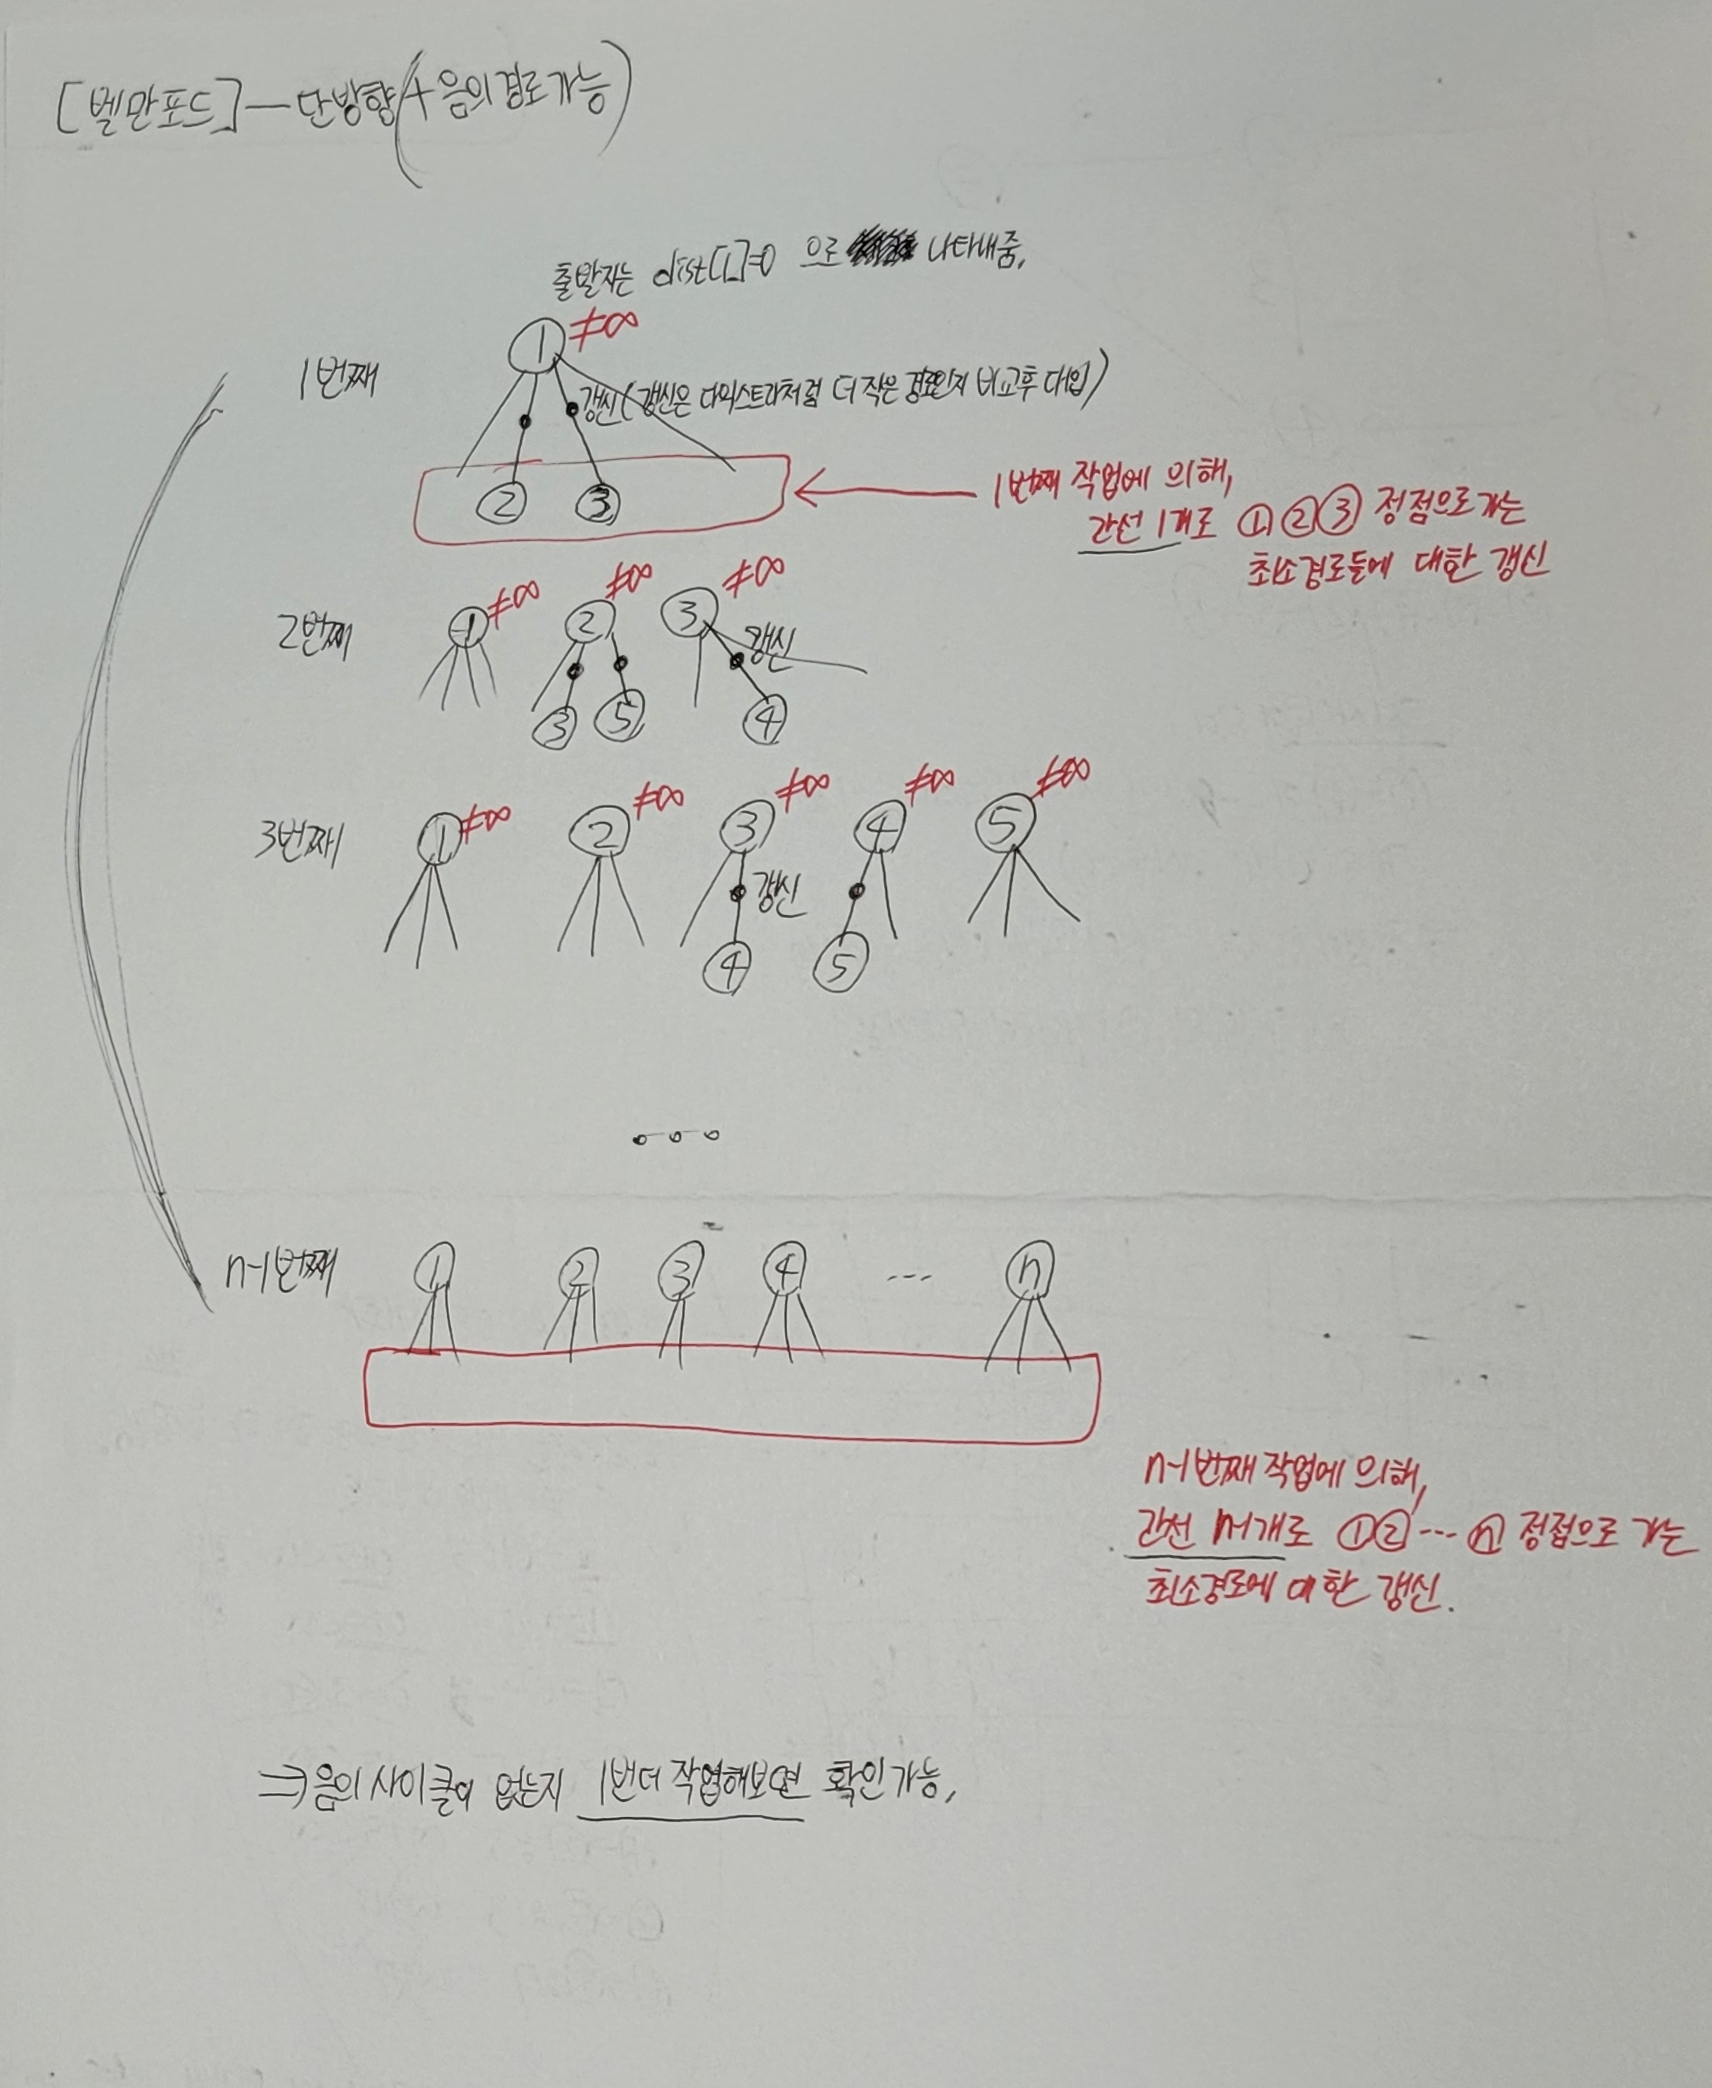 [벨만포드] — 단방향(+음의경로가능)
출발지는 dist[1]=0 으로 나타내줌.
1번째
1 ≠∞
갱신(갱신은 다익스트라처럼 더 작은 경로인지 비교후 대입)
2 3
1번째 작업에 의해,
간선 1개로 ①②③ 정점으로가는
최소경로들에 대한 갱신
2번째
1 ≠∞ 2 ≠∞ 3 ≠∞
갱신
3 5 4
3번째
1 ≠∞ 2 ≠∞ 3 ≠∞ 4 ≠∞ 5 ≠∞
갱신
4 5
...
n-1번째
1 2 3 4 --- n
n-1번째 작업에 의해,
간선 n-1개로 ①② --- ⓝ 정점으로 가는
최소경로에 대한 갱신.
⇒ 음의 사이클이 없는지 1번더 작업해보면 확인가능.